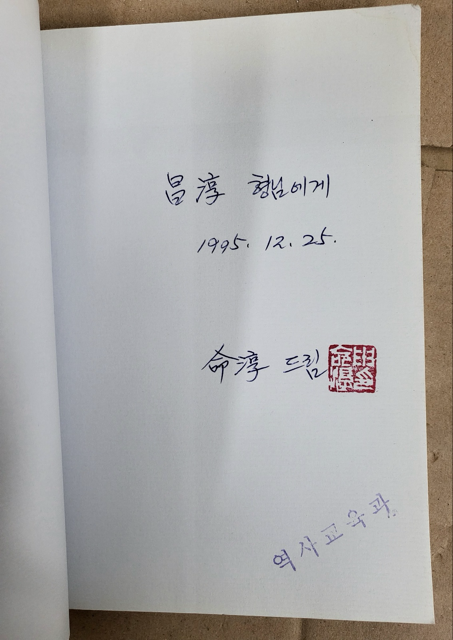 昌淳 형님에게
1995. 12. 25.
命淳 드림
역사교육과